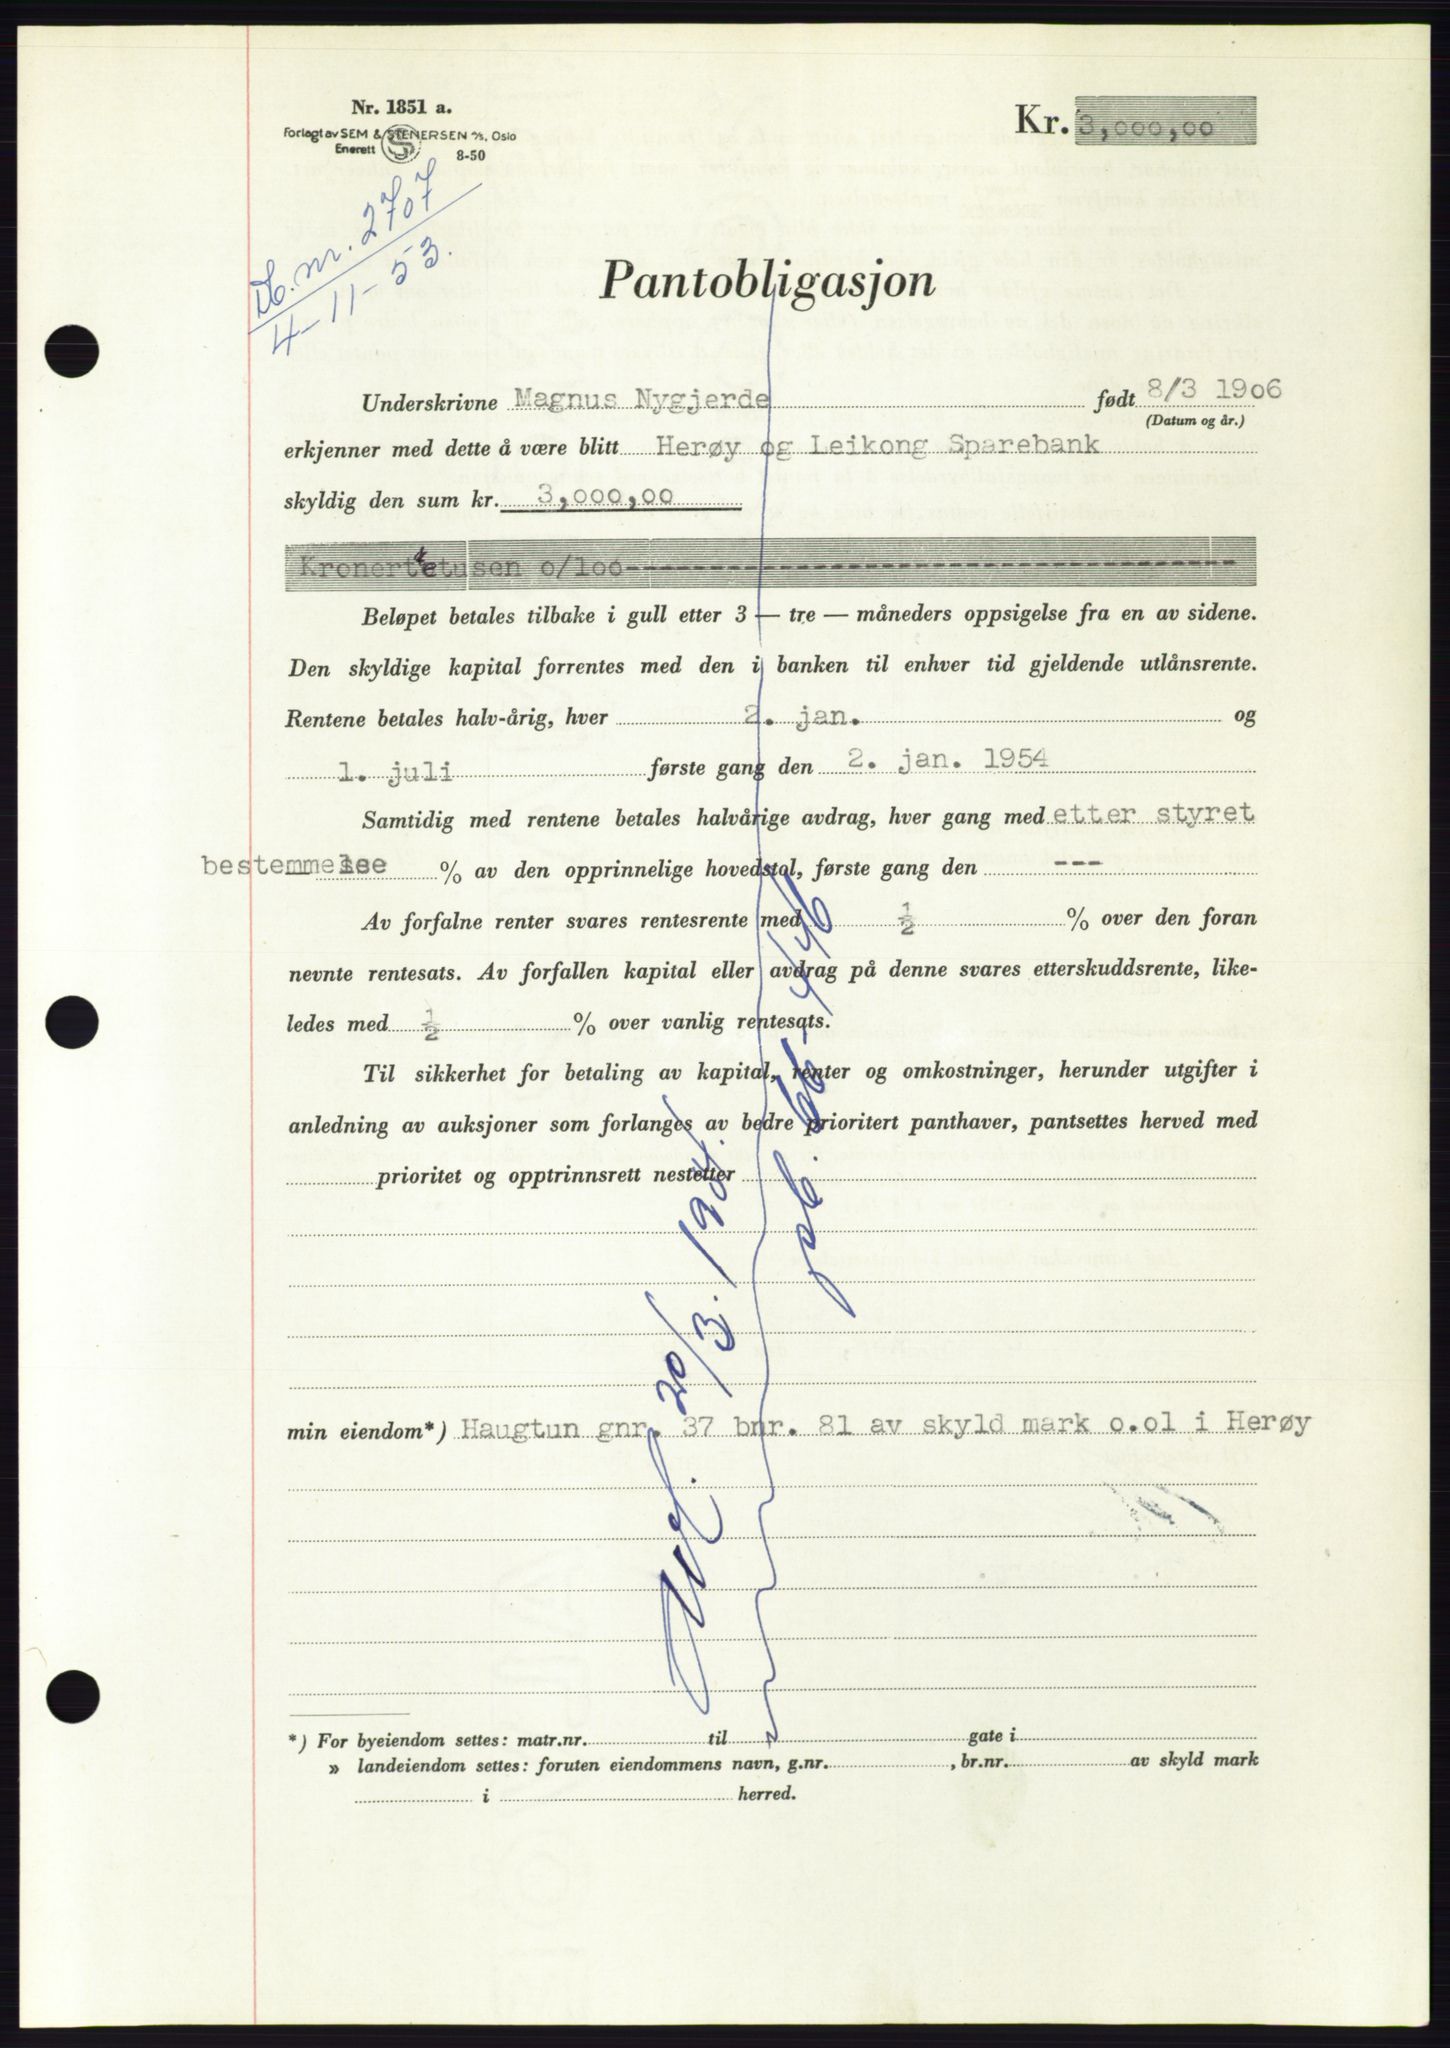 Nr. 1851 a.
Forlagt av SEM & STENERSEN A/S, Oslo
Enerett
8-50
Kr. 3,000,00
Db. nr. 2707
4-11-53.
Pantobligasjon
Underskrivne Magnus Nygjerde født 8/3 1906
(Datum og år.)
erkjenner med dette å være blitt Herøy og Leikong Sparebank
skyldig den sum kr. 3,000,00
Kronertretusen 0/100------------------------------------
Beløpet betales tilbake i gull etter 3 — tre — måneders oppsigelse fra en av sidene.
Den skyldige kapital forrentes med den i banken til enhver tid gjeldende utlånsrente.
Rentene betales halv-årig, hver 2. jan. og
1. juli første gang den 2. jan. 1954
Samtidig med rentene betales halvårige avdrag, hver gang med etter styret
bestemmelse % av den opprinnelige hovedstol, første gang den ---
Av forfalne renter svares rentesrente med ½ % over den foran
nevnte rentesats. Av forfallen kapital eller avdrag på denne svares etterskuddsrente, like-
ledes med ½ % over vanlig rentesats.
Til sikkerhet for betaling av kapital, renter og omkostninger, herunder utgifter i
anledning av auksjoner som forlanges av bedre prioritert panthaver, pantsettes herved med
prioritet og opptrinnsrett nestetter
min eiendom*) Haugtun gnr. 37 bnr. 81 av skyld mark 0.01 i Herøy
*) For byeiendom settes: matr.nr. til gate i
» landeiendom settes: foruten eiendommens navn, g.nr. , br.nr. av skyld mark
i herred.